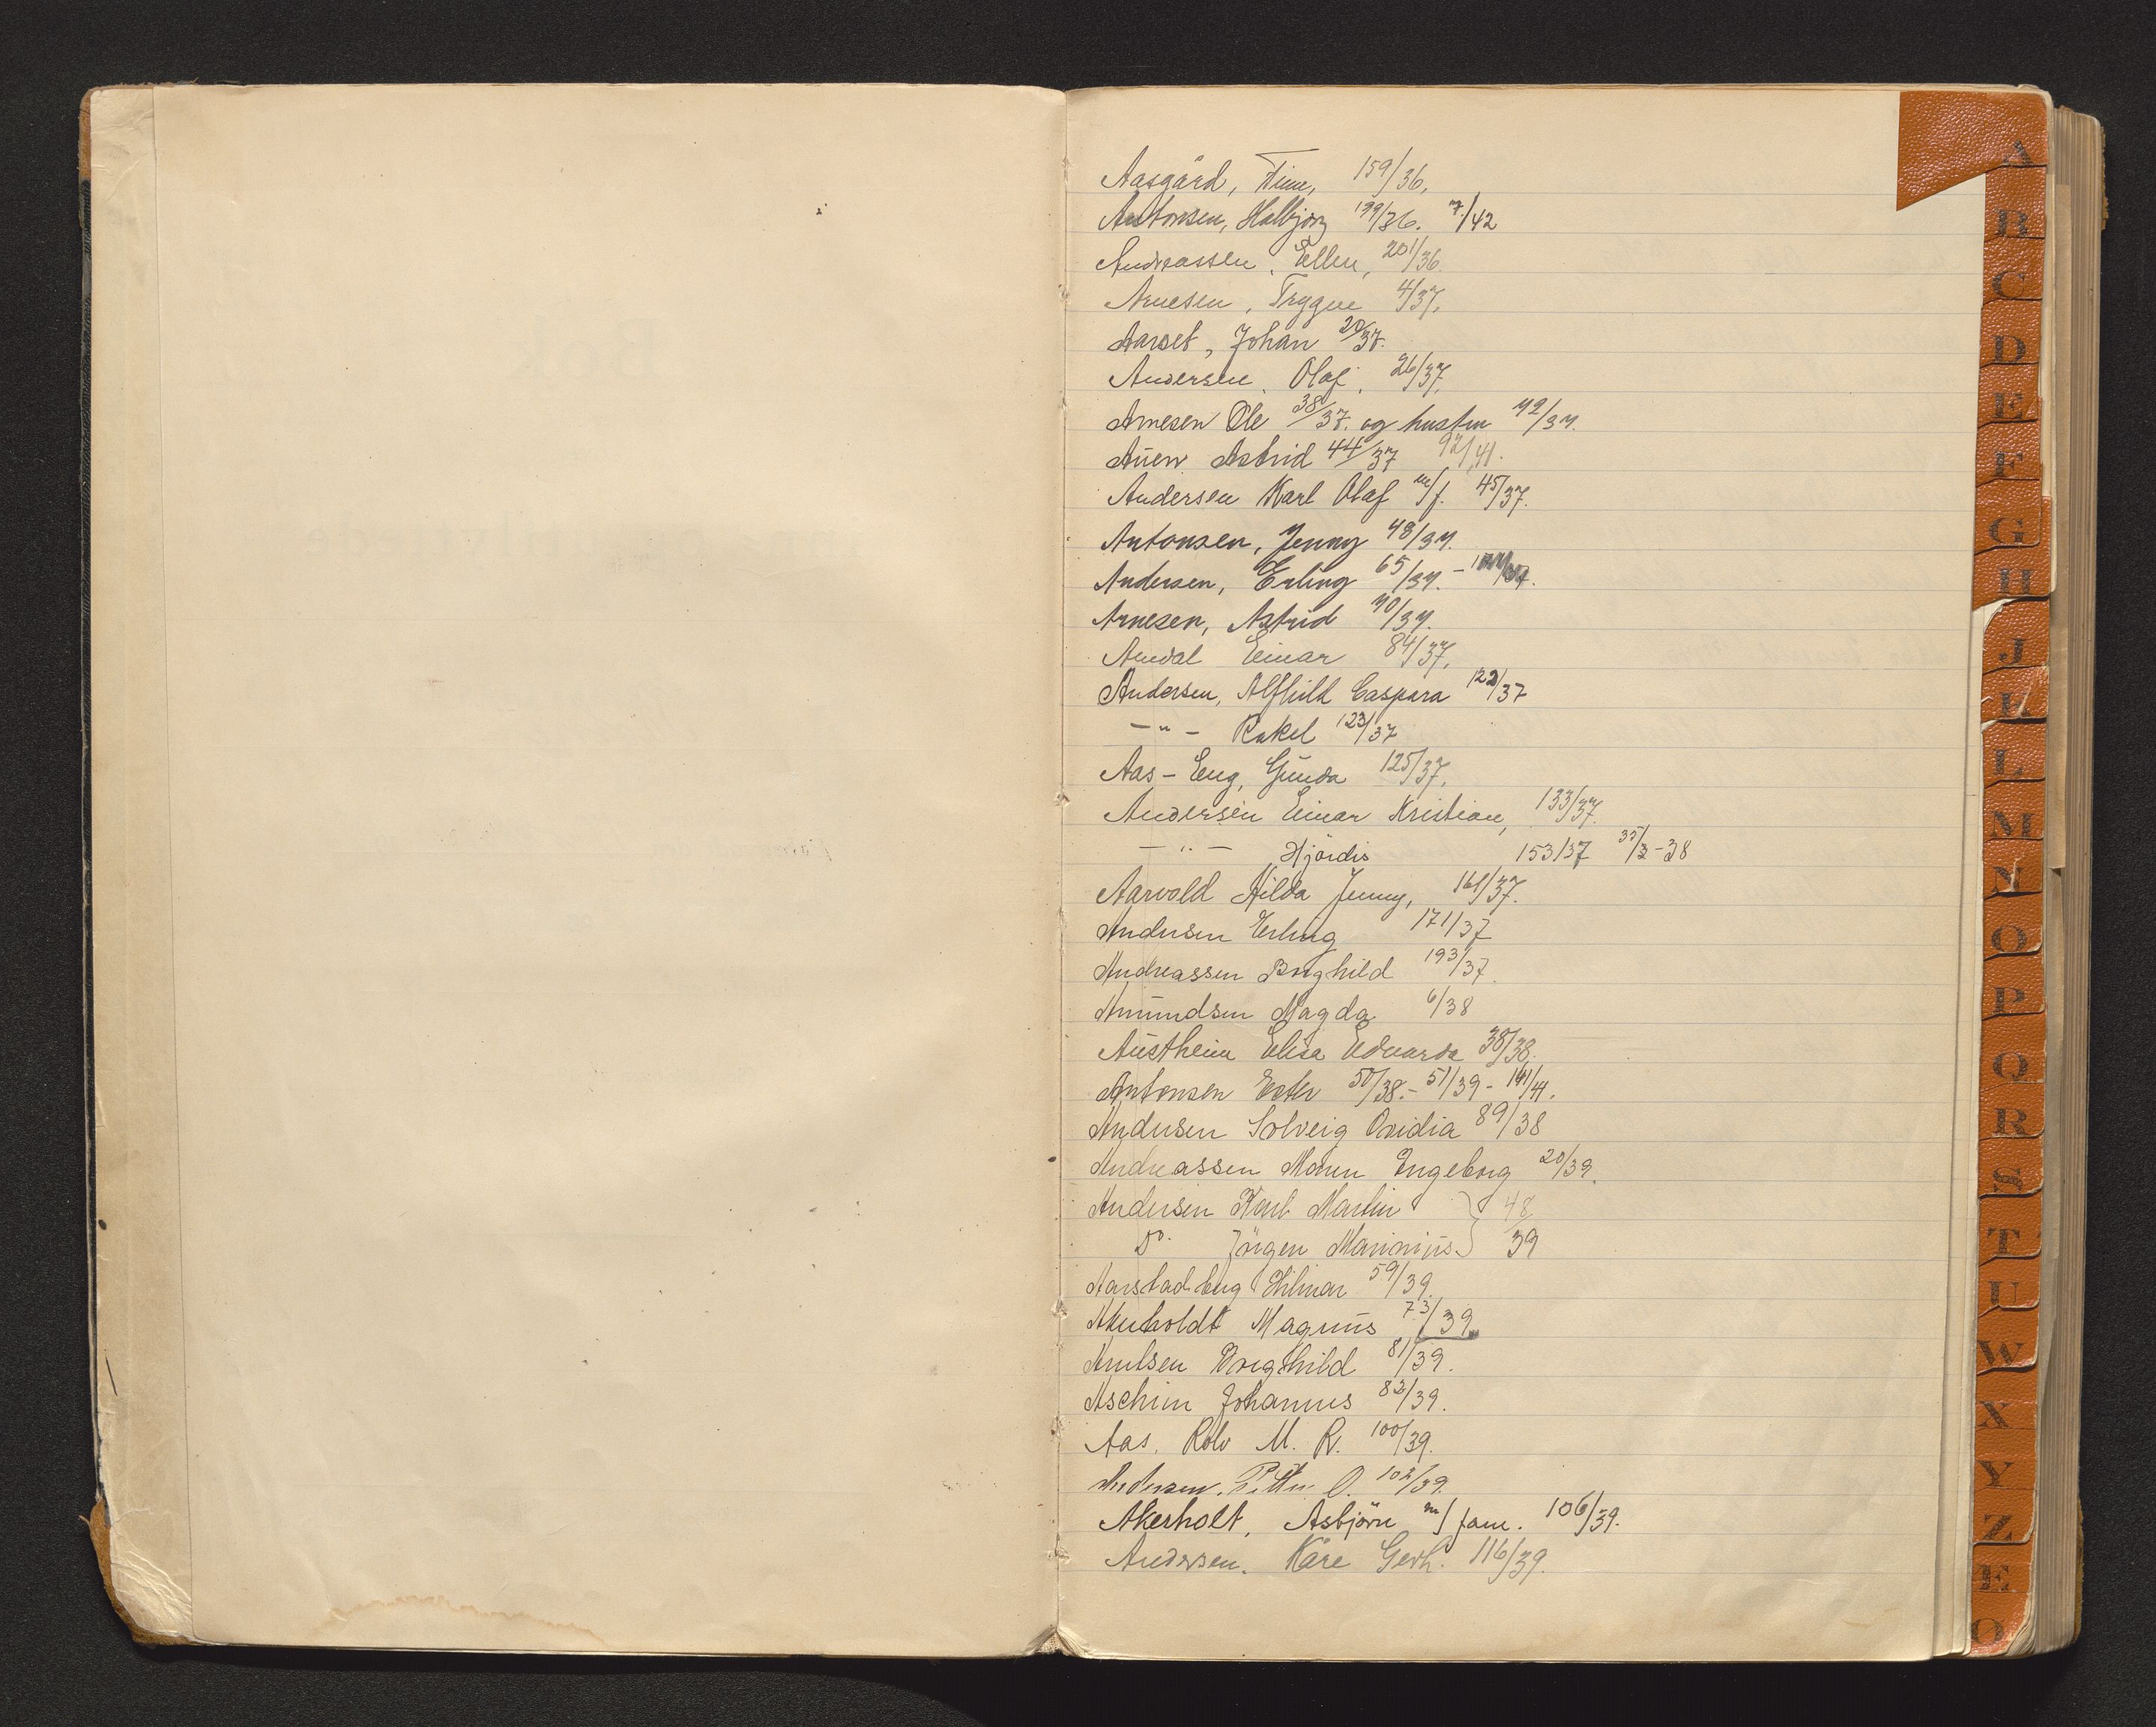 Aasgård, Finn, 159/36.
Antonsen, Halbjörg 199/36. 7/42
Andreassen, Ellen, 201/36.
Arnesen, Trygve 4/37.
Aarset, Johan 20/37.
Andersen, Olaf. 26/37.
Arnesen Ole 38/37. og hustru 42/37.
Auen Astrid 44/37 92/41.
Andersen Karl Olaf m/f. 45/37.
Antonsen, Jenny 48/37.
Andersen, Erling 65/37. -
Arnesen, Astrid 70/37.
Einar 84/37.
Andersen, Alfhild Caspara 122/37
- " - Rakel 123/37
Aas-Eng, Gunda 125/37.
Andersen Einar Kristian, 133/37.
- " - Hjördis 153/37 35/3-38
Aarvold Hilda Jenny, 161/37.
Andersen Erling 171/37
Andreassen Borghild 193/37.
Amundsen Magda 6/38
Austheim Elisa Edvarda 38/38.
Antonsen Ester 50/38. - 51/39 - 141/41.
Andersen Solveig Ovidia 89/38
Andreassen Maren Engeborg 20/39.
Andersen Karl Martin } 48/
Do. Jörgen Marinius } 39
Aarstadberg Hilmar 59/39.
Akerholdt Magnus 73/39.
Arnesen Borghild 81/39.
Aschim Johannes 82/39.
Aas, Rolv M. R. 100/39.
Andersen, O. 102/39.
Akerholt, Asbjörn m/ fam. 106/39.
Andersen. Kåre Gerh. 116/39.
A
B
C
D
E
F
G
H
J
K
L
M
N
O
P
Q
R
S
T
U
W
X
Y
Z
Æ
Ø